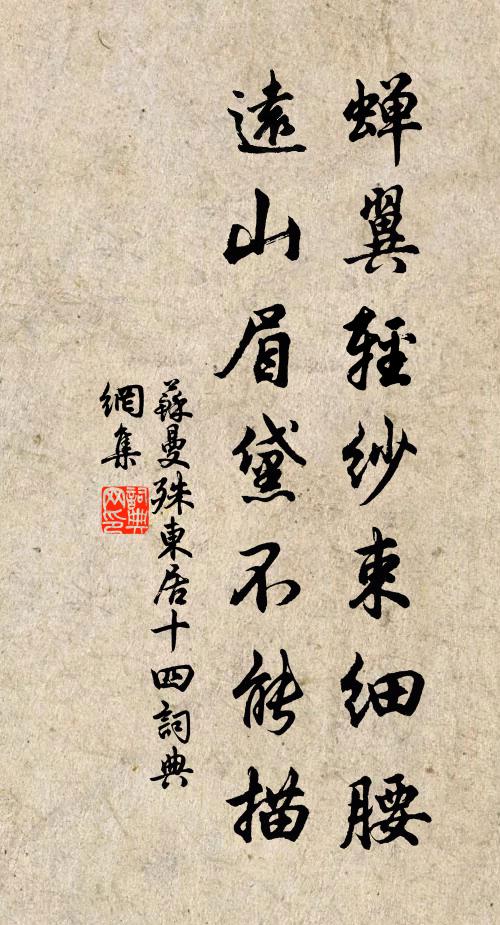 蟬翼輕紗束細腰
遠山眉黛不能描
蘇曼殊東居十四詞典
網集
詞典
网印